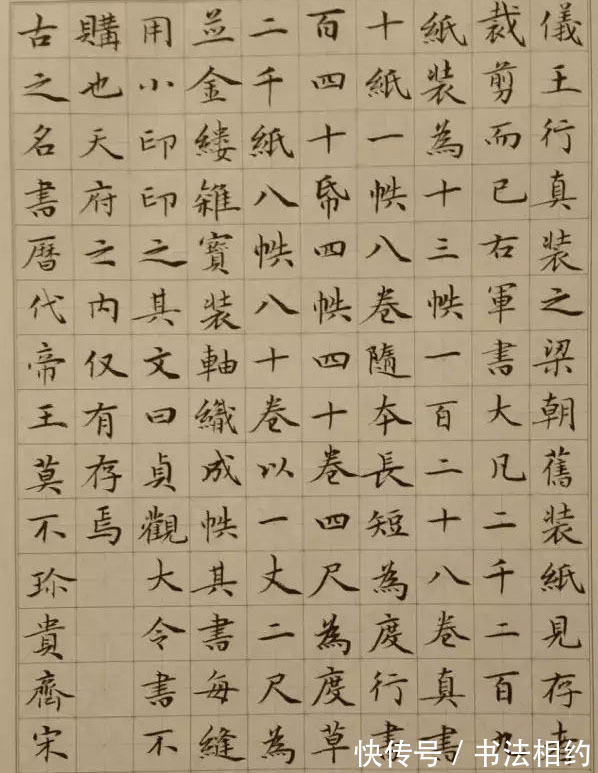 儀王行真装之梁朝舊装紙見存
裁剪而已右軍書大凡二千二百
紙装為十三帙一百二十八卷真書
十紙一帙八卷隨本長短為度行書
百四十帋四帙四十卷四尺為度草
二千紙八帙八十卷以一丈二尺為
並金縷雜寶装軸織成帙其書每縫
用小印印之其文曰貞觀大令書不
購也天府之内仅有存焉
古之名書曆代帝王莫不珎貴齊宋
快传号 / 书法相约